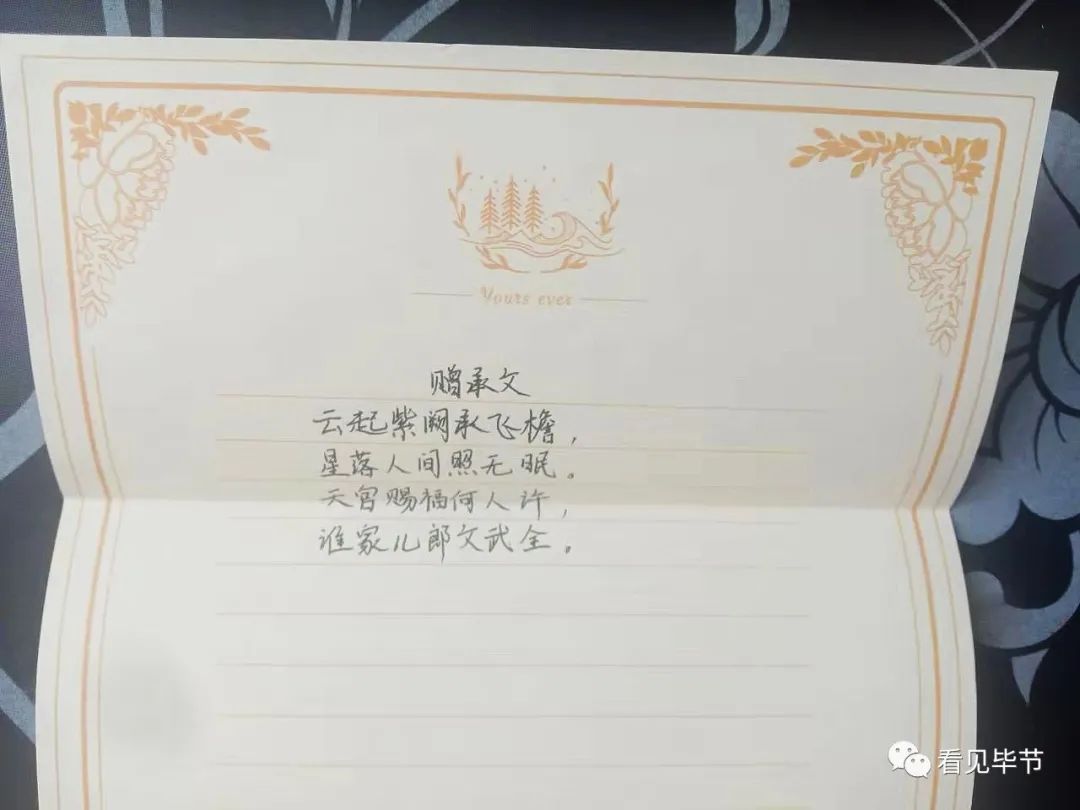 Yours ever
赠承文
云起紫阙承飞檐，
星落人间照无眠。
天官赐福何人许，
谁家儿郎文武全。
看见毕节